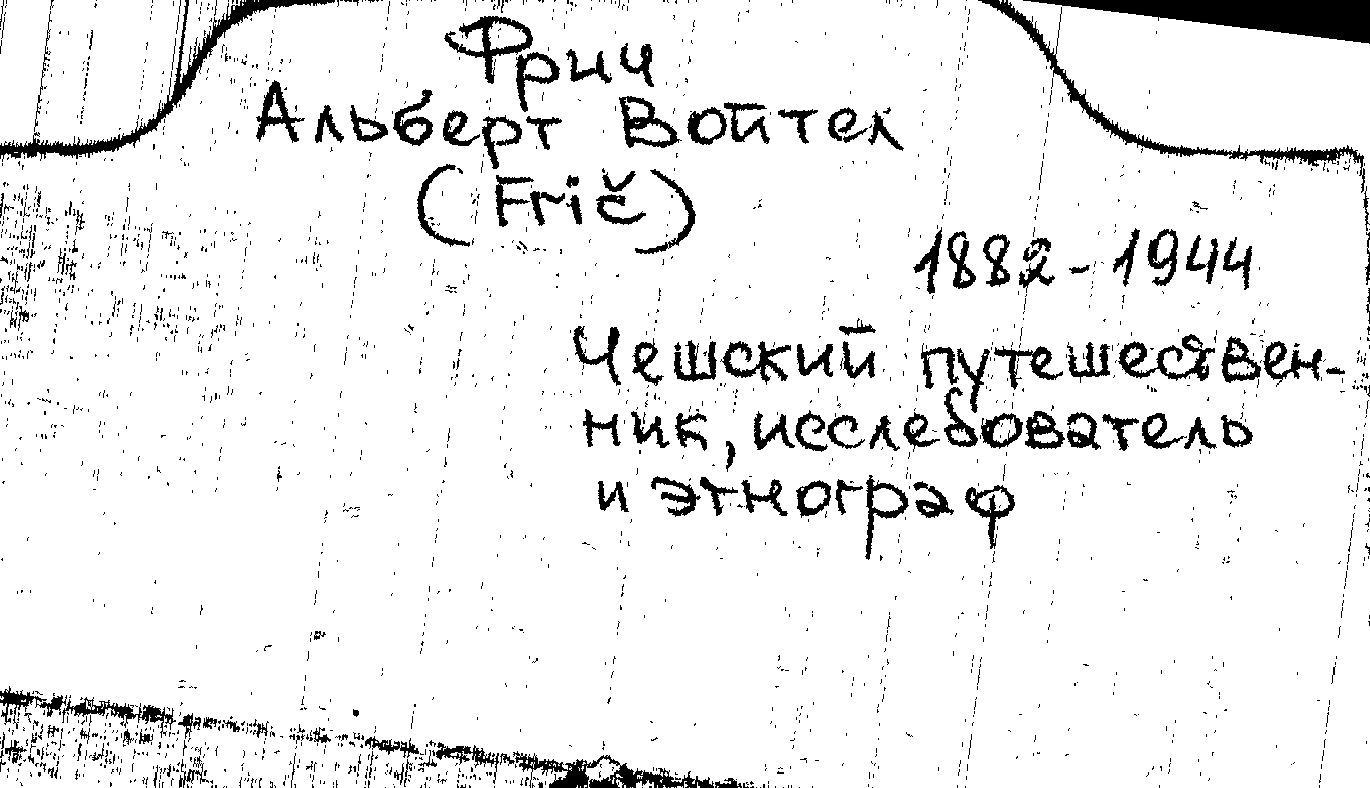 Фрич
Альберт Войтех
(Frič)
1882-1944
Чешский путешествен-
ник, исследователь
и этнограф